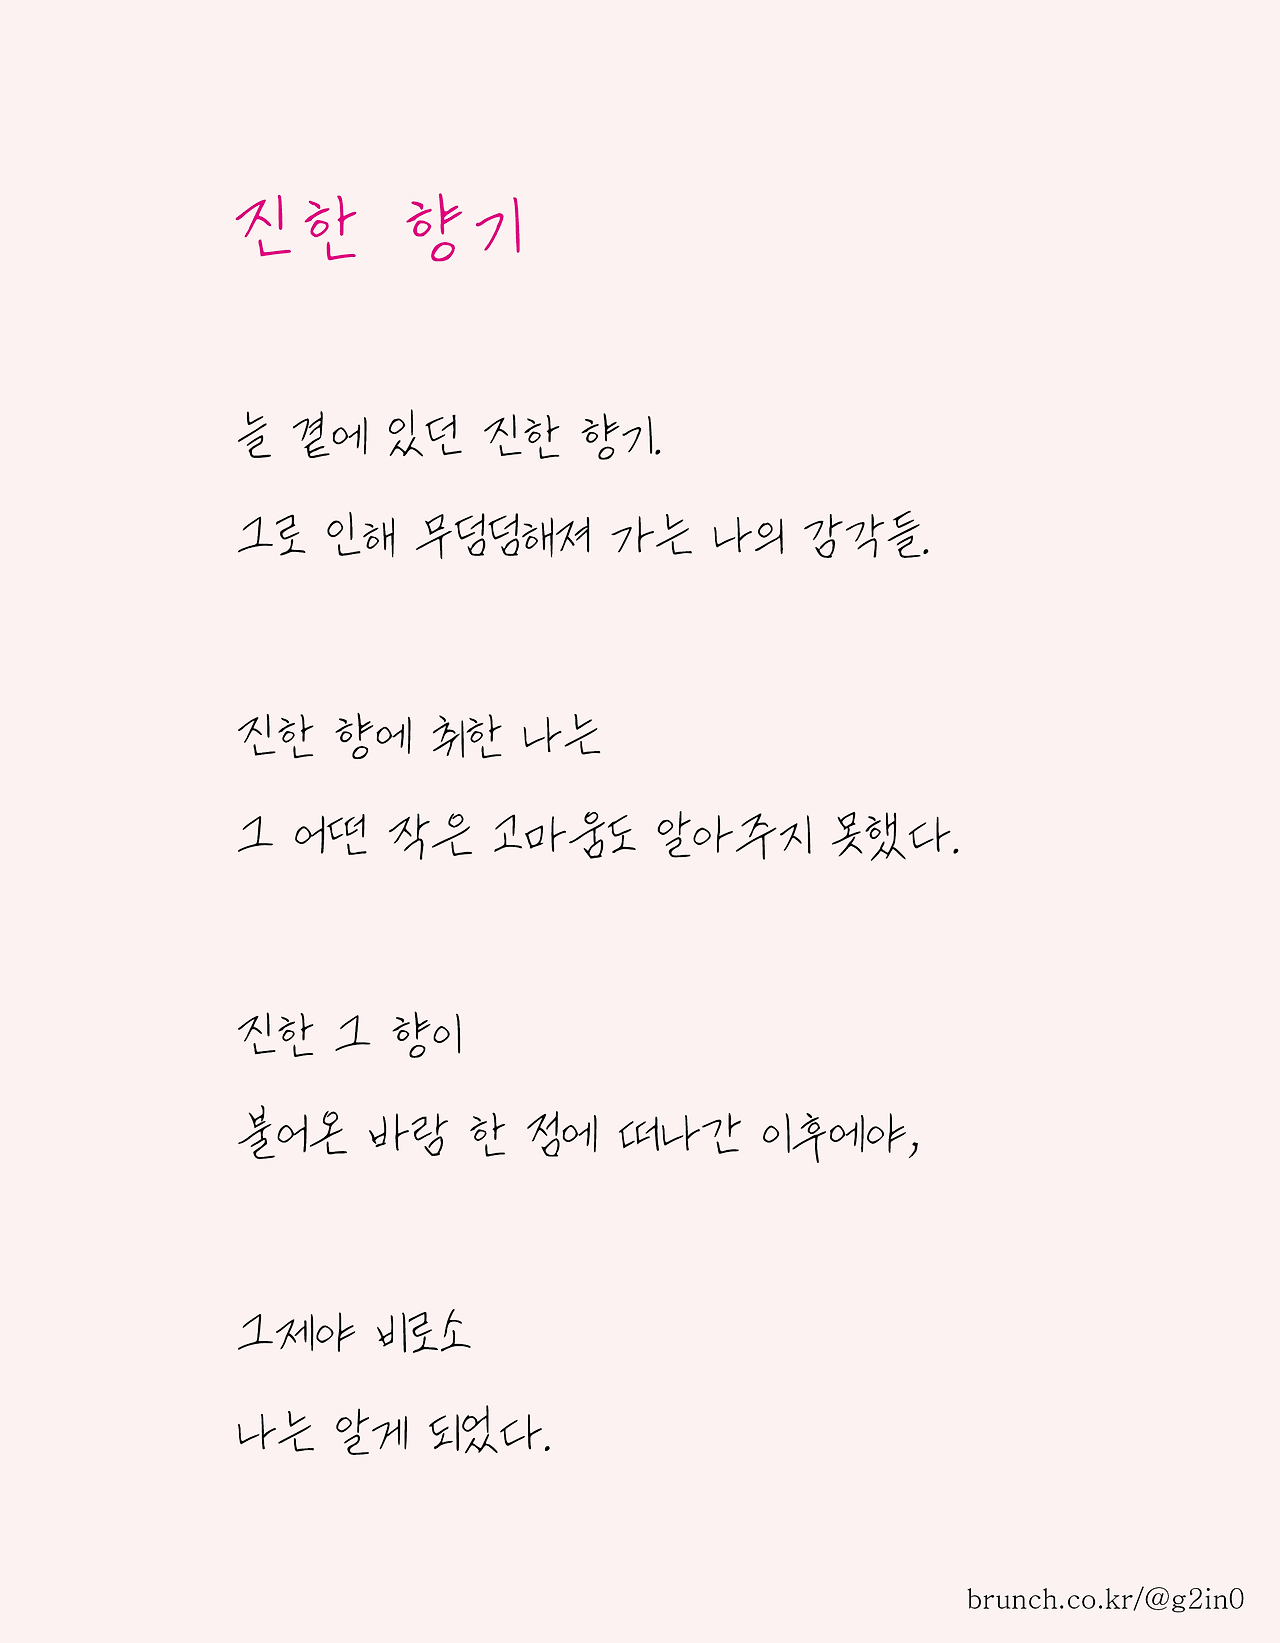 진한 향기
늘 곁에 있던 진한 향기.
그로 인해 무덤덤해져 가는 나의 감각들.
진한 향에 취한 나는
그 어떤 작은 고마움도 알아주지 못했다.
진한 그 향이
불어온 바람 한 점에 떠나간 이후에야,
그제야 비로소
나는 알게 되었다.
brunch.co.kr/@g2in0